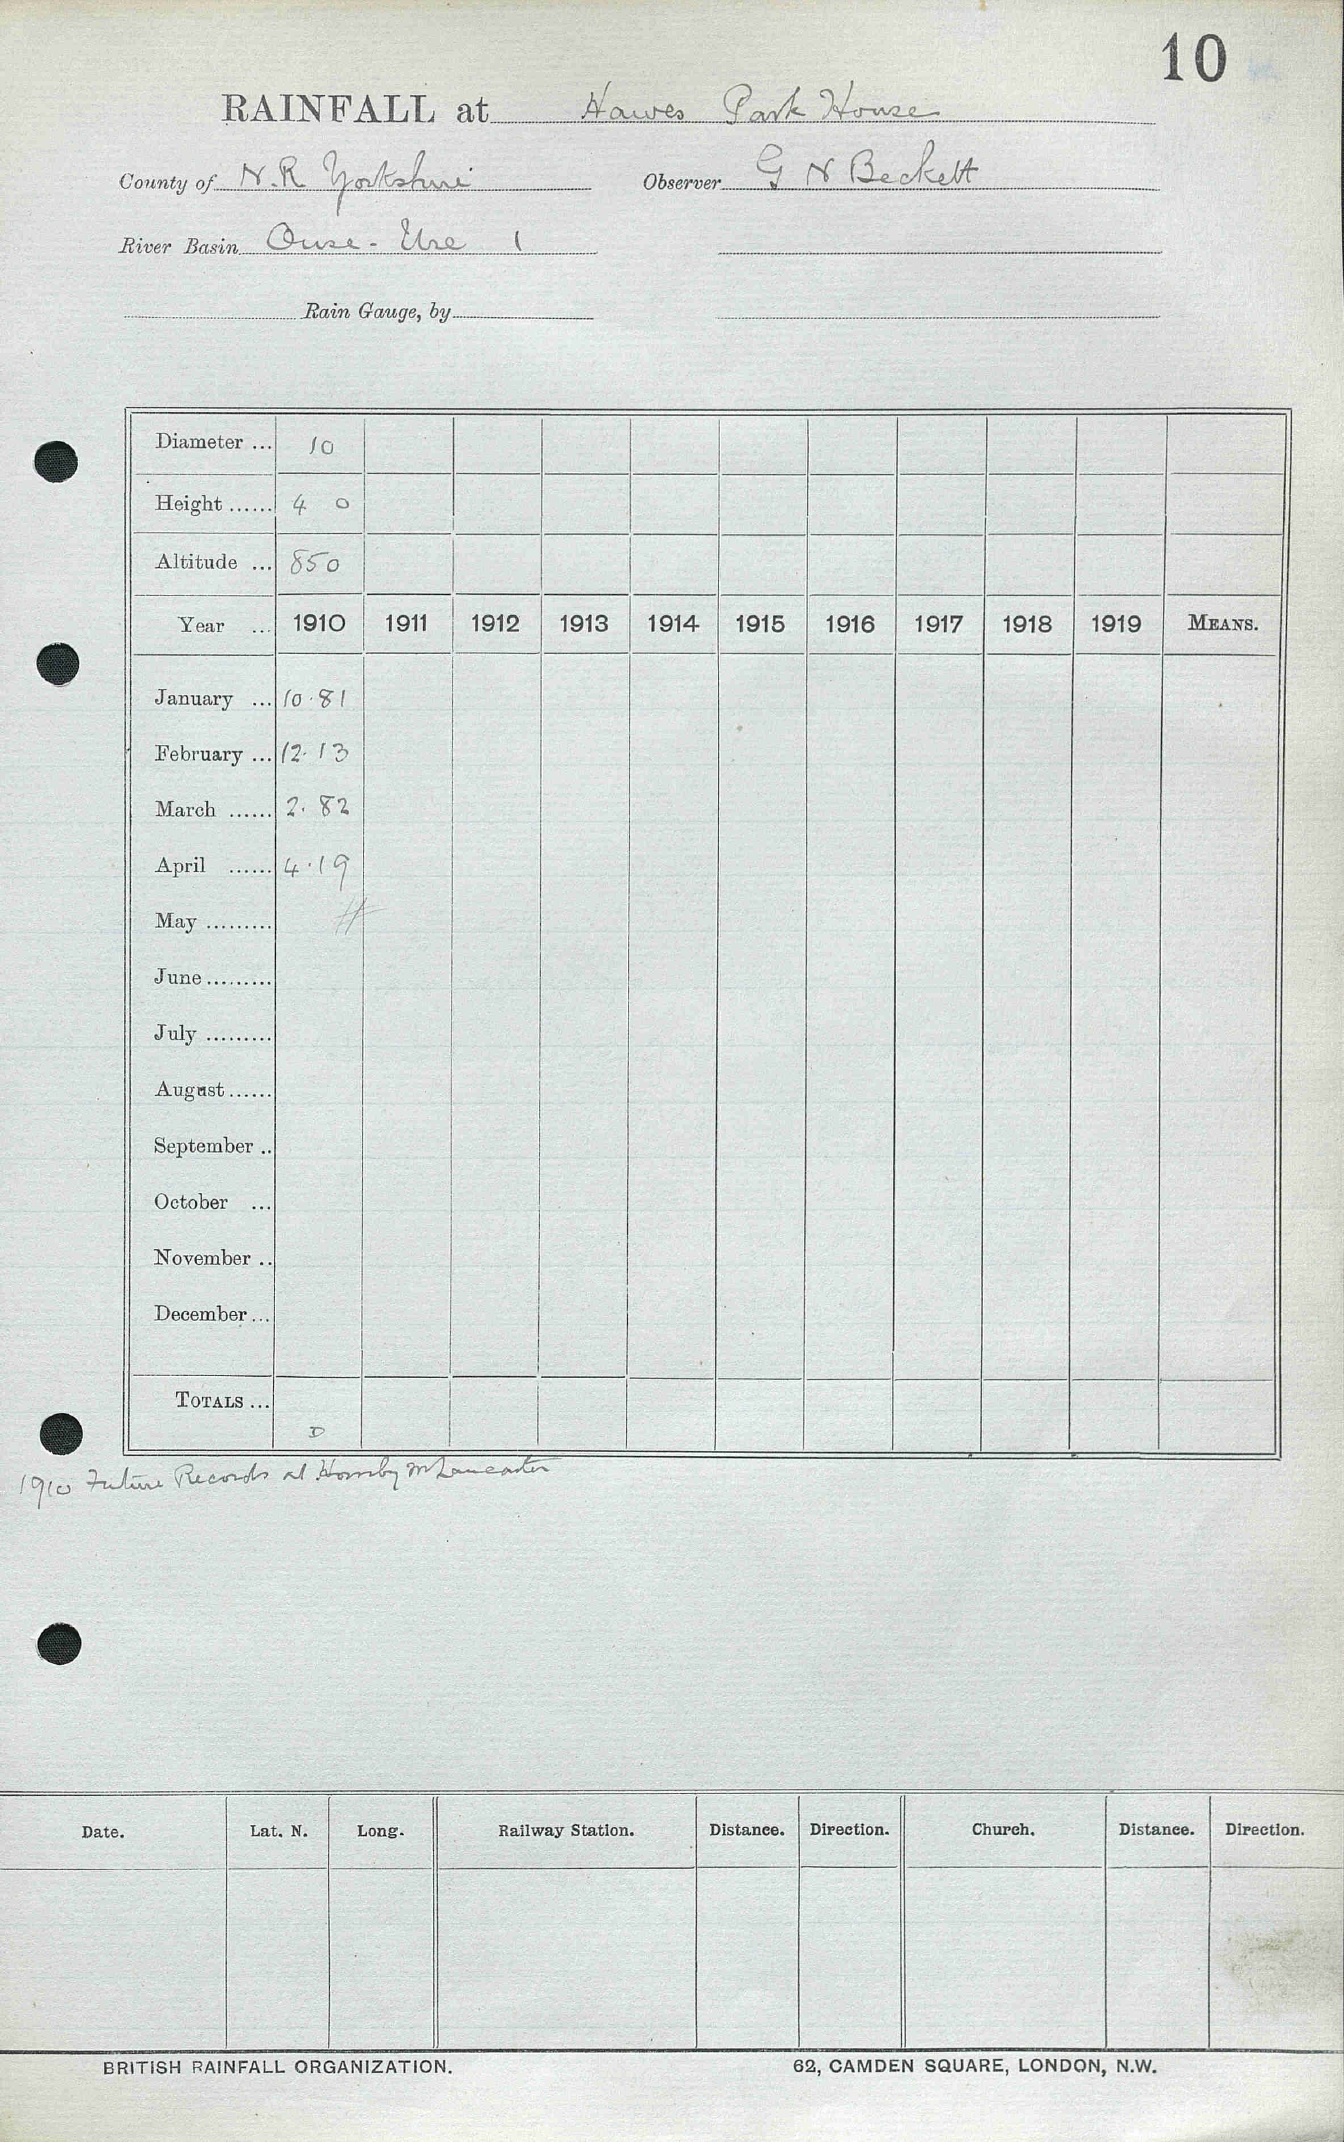 10
RAINFALL at Hawes Park House
County of N.R Yorkshire Observer G N Beckett
River Basin Ouse - Ure 1
Rain Gauge, by
Diameter ... 10
Height ...... 4 0
Altitude ... 850
Year ... 1910 1911 1912 1913 1914 1915 1916 1917 1918 1919 MEANS.
January ... 10.81
February ... 12.13
March ...... 2.82
April ...... 4.19
May .........
June .........
July .........
August ......
September ..
October ...
November ..
December ...
TOTALS ...
D
1910 Future Records at Hornby Lancaster
Date. Lat. N. Long. Railway Station. Distance. Direction. Church. Distance. Direction.
BRITISH RAINFALL ORGANIZATION. 62, CAMDEN SQUARE, LONDON, N.W.